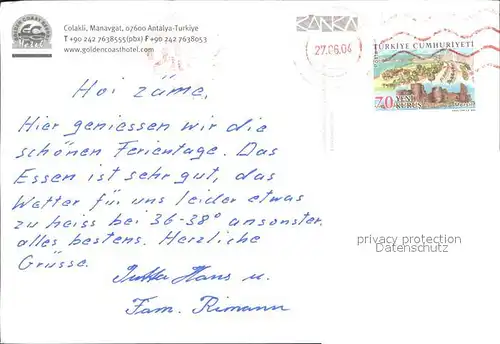 Colakli, Manavgat, 07600 Antalya-Turkiye
T +90 242 7638555(pbx) F +90 242 7638053
www.goldencoasthotel.com
27.06.06
TÜRKİYE CUMHURİYETİ
70 YENİ
KURUŞ
Hoi zäme,
Hier geniessen wir die
schönen Ferientage. Das
Essen ist sehr gut, das
Wetter für uns leider etwas
zu heiss bei 36-38° ansonsten
alles bestens. Herzliche
Grüsse.
Jutta Hans u.
Fam. Rimann
privacy protection
Datenschutz